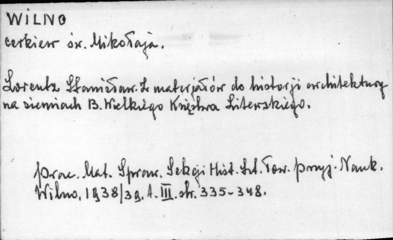 WILNO
cerkiew św. Mikołaja.
Lorentz Stanisław. Z materjałów do historji architektury
na ziemiach B. Wielkiego Księstwa Litewskiego.
Prac. Mat. Spraw. Sekcji Hist. Szt. Tow. Przyj. Nauk.
Wilno, 1938/39. t. III. str. 335-348.